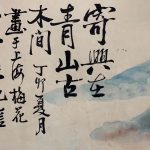 寄興在
青山古
木间
丁卯夏月
畫于上海梅花